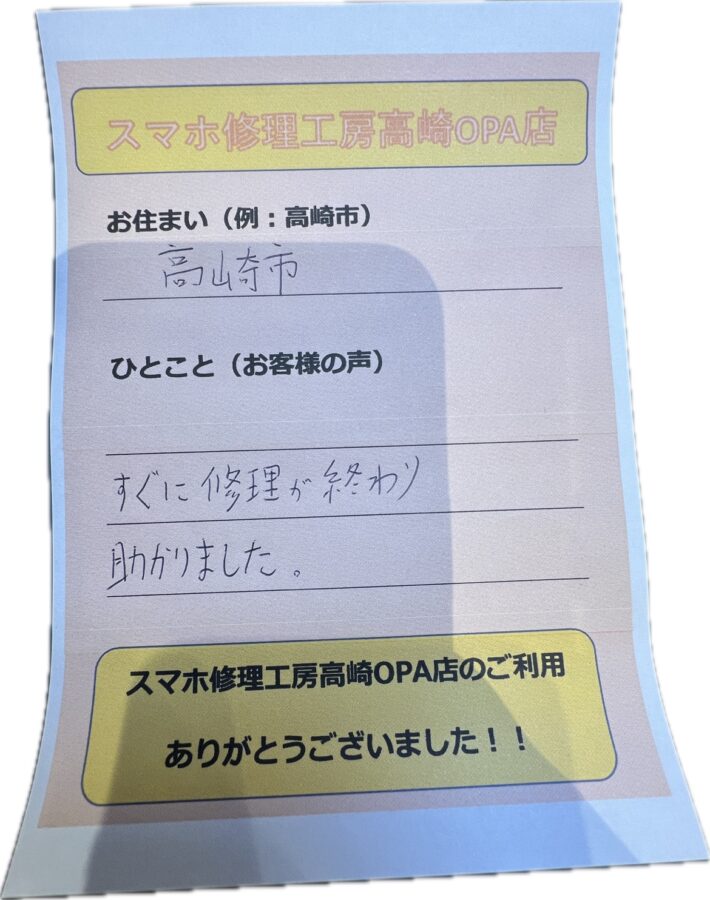 スマホ修理工房高崎OPA店
お住まい（例：高崎市）
高崎市
ひとこと（お客様の声）
すぐに修理が終わり
助かりました。
スマホ修理工房高崎OPA店のご利用
ありがとうございました！！